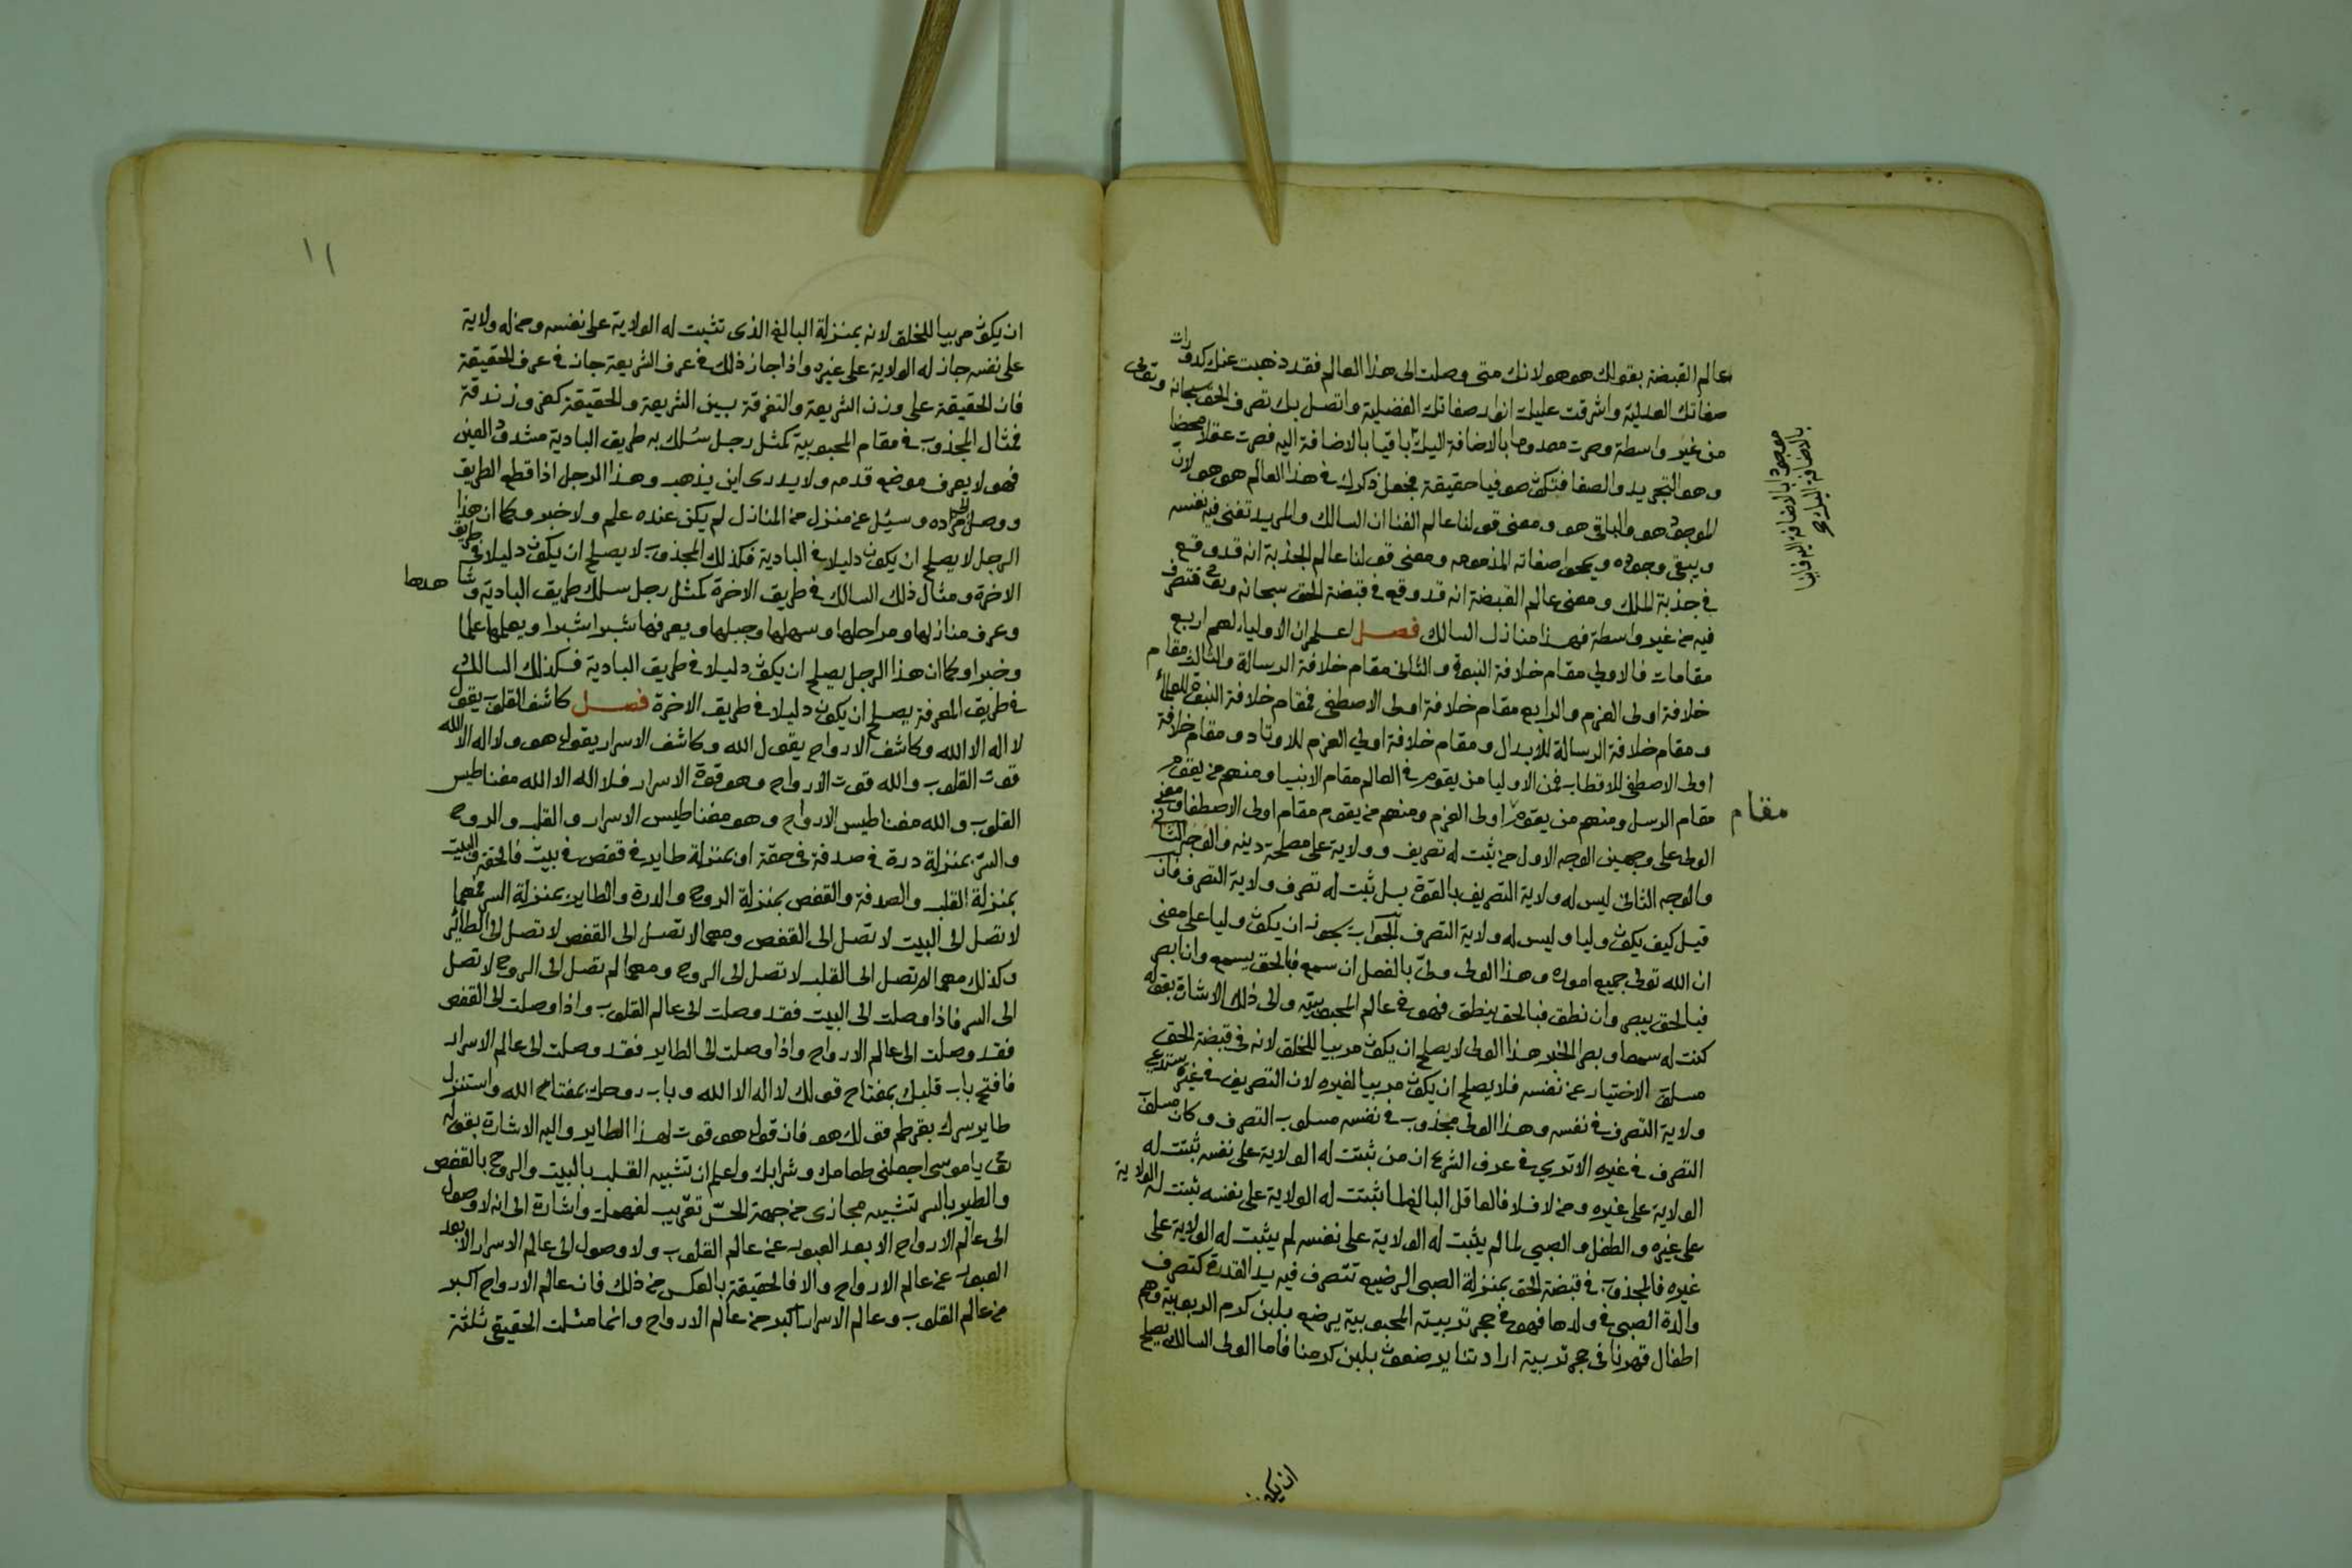 عالم القبضة بقولك هو هو لانك متى وصلت الى هذا العالم فقد ذهبت عنك كدورات
صفاتك العدلية واشرقت عليك انوار صفاتك الفضلية واتصل بك تصرف الحق سبحانه وتعالى
من غير واسطة وصرت معدوما بالاضافة اليك باقيا بالاضافة اليه فصرت عقلا محضا
وهو التجريد والصفا فتكون صوفيا حقيقة فجعل ذكرك في هذا العالم هو هو لان
الموجود هو والباقي هو ومعنى قولنا عالم الفنا ان السالك والمريد تفنى فيه نفسه
ويبقى وجوده ويمحوا صفاته المذمومه ومعنى قولنا عالم الجذبة انه قد وقع
في جذبة الملك ومعنى عالم القبضة انه قد وقع في قبضة الحق سبحانه وتعالى فتصرف
فيه من غير واسطة فهذا منازل السالك فصل اعلم ان الاولياء لهم اربع
مقامات فالاولى مقام خلافة النبوة والثانى مقام خلافة الرسالة والثالث مقام
خلافة اولى العزم والرابع مقام خلافة اولى الاصطفى فمقام خلافة النبوة للعلماء
ومقام خلافة الرسالة للابدال ومقام خلافة اولى العزم للاوتاد ومقام خلافة
اولى الاصطفى للاقطاب فمن الاوليا من يقوم في العالم مقام الانبيا ومنهم من يقوم
مقام الرسل ومنهم من يقوم اولى العزم ومنهم من يقوم مقام اولى الاصطفا ومعنى
الولى على وجهين الوجه الاول من ثبت له تصريف وولاية على مصلحة دينه والوجه الثانى
والوجه الثانى ليس له ولاية التصريف بالقوة بل ثبت له تصرف ولاية التصرف فان
قيل كيف يكون وليا وليس له ولاية التصرف الجواب يجوز ان يكون وليا على معنى
ان الله تولى جميع اموره وهذا الولى ولىّ بالفصل ان سمع فبالحق يسمع وان ابصر
فبالحق يبصر وان نطق فبالحق ينطق فهو في عالم المحبوبيته والى ذلك الاشارة بقوله
كنت له سمعا وبصرا الخبر هذا الولى لا يصلح ان يكون مربيا للخلق لانه في قبضة الحق
مسلوب الاختيار عن نفسه فلا يصلح ان يكون مربيا لغيره لان التصريف في غيره يستدعى
ولاية التصرف في نفسه وهذا الولى مجذوب في نفسه مسلوب التصرف وكان مسلوب
التصرف في غيره الا ترى في عرف الشرع ان من ثبتت له الولاية على نفسه ثبتت له
الولاية على غيره ومن لا فلا فالعاقل البالغ لما ثبتت له الولاية على نفسه ثبتت له الولاية
على غيره والطفل والصبي لما لم يثبت له الولاية على نفسه لم يثبت له الولاية على
غيره فالمجذوب في قبضة الحق بمنزلة الصبى الرضيع تتصرف فيه يد القدرة كتصرف
والدة الصبى في ولدها فهو في حجر تربيته المحبوبية يرضع بلبن كرم الربوبية وهم
اطفال قهرنا في حجر تربية ارادتنا يرضعون بلبن كرمنا فاما الولى السالك يصلح
موجودا بالاضافة اليه فانيا
بالاضافة اليك صح
مقام
ان يكون
١١
ان يكون مربيا للخلق لانه بمنزلة البالغ الذى تثبت له الولاية على نفسه ومن له ولاية
على نفسه جاز له الولاية على غيره واذا جاز ذلك في عرف الشريعة جاز في عرف الحقيقة
فان الحقيقة على وزن الشريعة والتفرقة بين الشريعة والحقيقة كفر وزندقة
فمثال المجذوب في مقام المحبوبية كمثل رجل سُلك به طريق البادية مشدود العين
فهو لا يعرف موضع قدمه ولا يدرى اين يذهب وهذا الرجل اذا قطع الطريق
ووصل الى مراده وسيُل عن منزل من المنازل لم يكن عنده علم ولا خبر وكما ان هذا
الرجل لا يصلح ان يكون دليلا في البادية فكذلك المجذوب لا يصلح ان يكون دليلا في طريق
الاخرة ومثال ذلك السالك في طريق الاخرة كمثل رجل سلك طريق البادية وشاهدها
وعرف منازلها ومراحلها وسهلها وجبلها ويعرفها شبرا شبرا ويعلمها علما
وخبرا وكما ان هذا الرجل يصلح ان يكون دليلا في طريق البادية فكذلك السالك
في طريق المعرفة يصلح ان يكون دليلا في طريق الاخرة فصل كاشف القلوب يقول
لا اله الا الله وكاشف الارواح يقول الله وكاشف الاسرار يقول هو ولا اله الا الله
قوت القلوب والله قوت الارواح وهو قوة الاسرار فلا اله الا الله مغناطيس
القلوب والله مغناطيس الارواح وهو مغناطيس الاسرار والقلب والروح
والسرّ بمنزلة درة في صدفة في حقة او بمنزلة طاير في قفص في بيت فالحقة والبيت
بمنزلة القلب والصدفة والقفص بمنزلة الروح والدرة والطاير بمنزلة السر فمهما
لا تصل الى البيت لا تصل الى القفص ومهما لا تصل الى القفص لا تصل الى الطائر
وكذلك مهما لم تصل الى القلب لا تصل الى الروح ومهما لم تصل الى الروح لا تصل
الى السر فاذا وصلت الى البيت فقد وصلت الى عالم القلوب واذا وصلت الى القفص
فقد وصلت الى عالم الارواح واذا وصلت الى الطاير فقد وصلت الى عالم الاسرار
فافتح باب قلبك بمفتاح قولك لا اله الا الله وباب روحك بمفتاح الله واستنزل
طاير سرك بقرطم قولك هو فان قولك هو قوت لهذا الطاير واليه الاشارة بقوله
تعالى يا موسى اجعلنى طعامك وشرابك واعلم ان تشبيه القلب بالبيت والروح بالقفص
والطير بالسر تشبيه مجازى من جهة الحسّ تقريب لفهمك واشارة الى انه لا وصول
الى عالم الارواح الا بعد العبور عن عالم القلوب ولا وصول الى عالم الاسرار الا بعد
العبور عن عالم الارواح والا فالحقيقة بالعكس من ذلك فان عالم الارواح اكبر
من عالم القلوب وعالم الاسرار اكبر من عالم الارواح وانما مثلت الحقيقى ثلثة